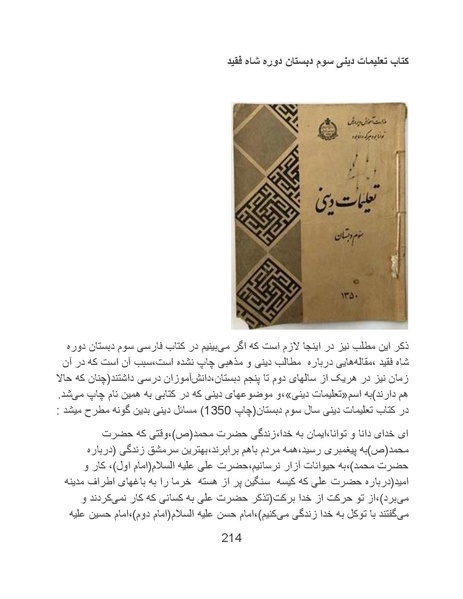 کتاب تعلیمات دینی سوم دبستان دوره شاه فقید
وزارت آموزش و پرورش
توانا بود هر که دانا بود
تعلیمات دینی
سوم دبستان
۱۳۵۰
ذکر این مطلب نیز در اینجا لازم است که اگر می‌بینیم در کتاب فارسی سوم دبستان دوره
شاه فقید ،مقاله‌هایی درباره مطالب دینی و مذهبی چاپ نشده است،سبب آن است که در آن
زمان نیز در هریک از سالهای دوم تا پنجم دبستان،دانش‌آموزان درسی داشتند(چنان که حالا
هم دارند)به اسم«تعلیمات دینی»،و موضوعهای دینی که در کتابی به همین نام چاپ می‌شد.
در کتاب تعلیمات دینی سال سوم دبستان(چاپ 1350) مسائل دینی بدین گونه مطرح میشد :
ای خدای دانا و توانا،ایمان به خدا،زندگی حضرت محمد(ص)،وقتی که حضرت
محمد(ص)به پیغمبری رسید،همه مردم باهم برابرند،بهترین سرمشق زندگی (درباره
حضرت محمد)،به حیوانات آزار نرسانیم،حضرت علی علیه السلام(امام اول)، کار و
امید(درباره حضرت علی که کیسه سنگین پر از هسته خرما را به باغهای اطراف مدینه
می‌برد)،از تو حرکت از خدا برکت(تذکر حضرت علی به کسانی که کار نمی‌کردند و
می‌گفتند با توکل به خدا زندگی می‌کنیم)،امام حسن علیه السلام(امام دوم)،امام حسین علیه
214